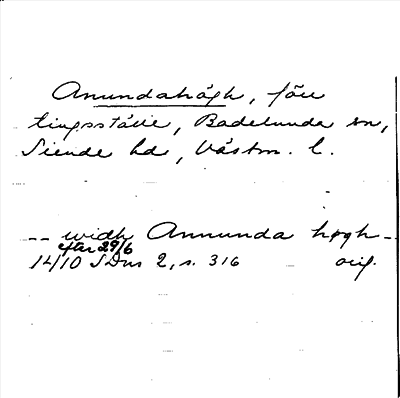 Anundahögh, förr
tingsställe, Badelunda sn,
Siende hd, Västm. l.
-- widh Annunda høgh --
efter 29/6
14/10 SDns 2, s. 316 orig.